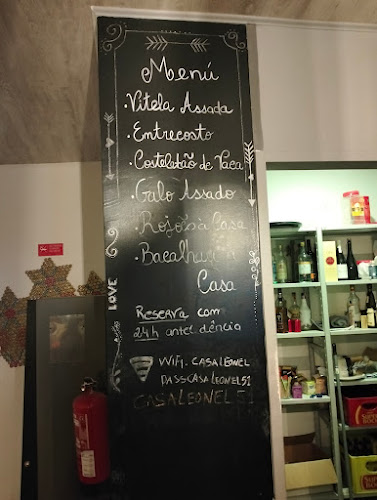 Menú
·Vitela Assada
·Entrecosto
·Costeletão de Vaca
Galo Assado
·Rojões à Casa
·Bacalhau
Casa
LOVE
RESERVA com
24h antecidência
WIFI. CASALEONEL
PASSCASALEONEL51
CASALEONEL51